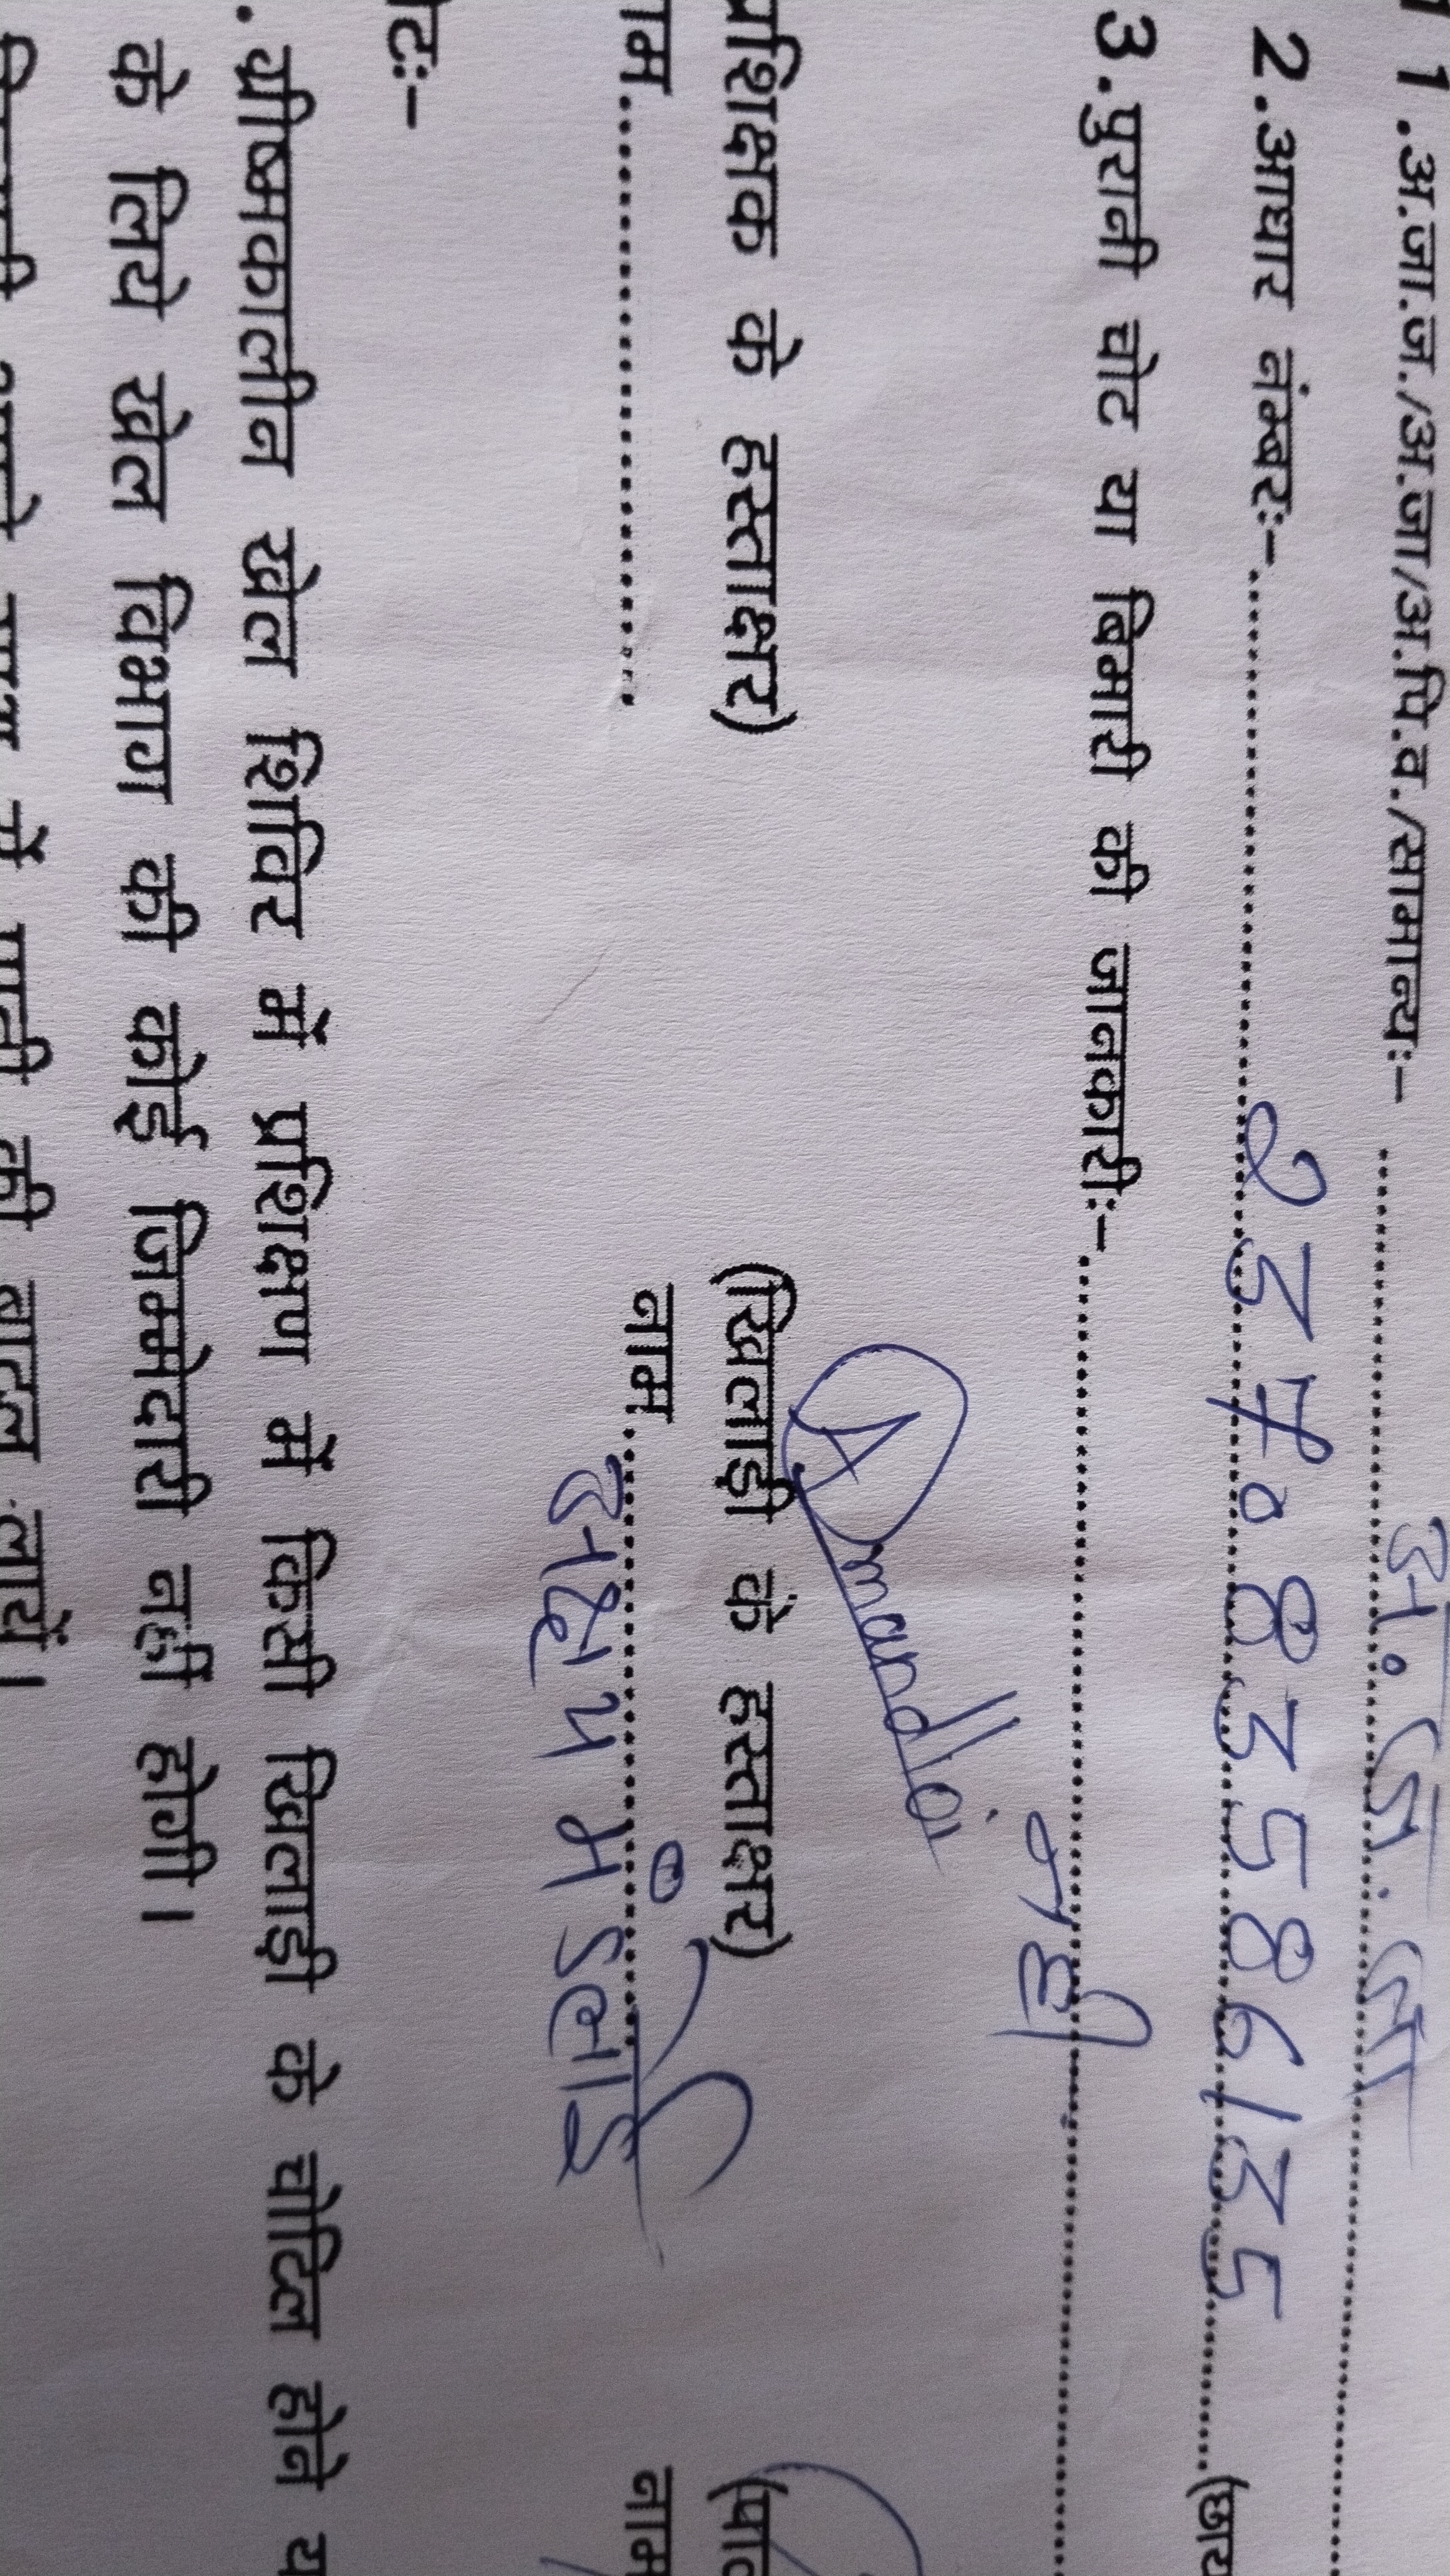 11.अ.जा.ज./अ.जा/अ.पि.व./सामान्यः– अ. ज. जा
2.आधार नंम्बरः– 237083586135 (छाय
3.पुरानी चोट या बिमारी की जानकारीः– नही
Amandloi
प्रशिक्षक के हस्ताक्षर) (खिलाड़ी के हस्ताक्षर)
नाम नाम
मंडलोई
.ग्रीष्मकालीन खेल शिविर में प्रशिक्षण में किसी खिलाड़ी के चोटिल होने य
के लिये खेल विभाग की कोई जिम्मेदारी नहीं होगी।
में पानी की बाटल लायें।